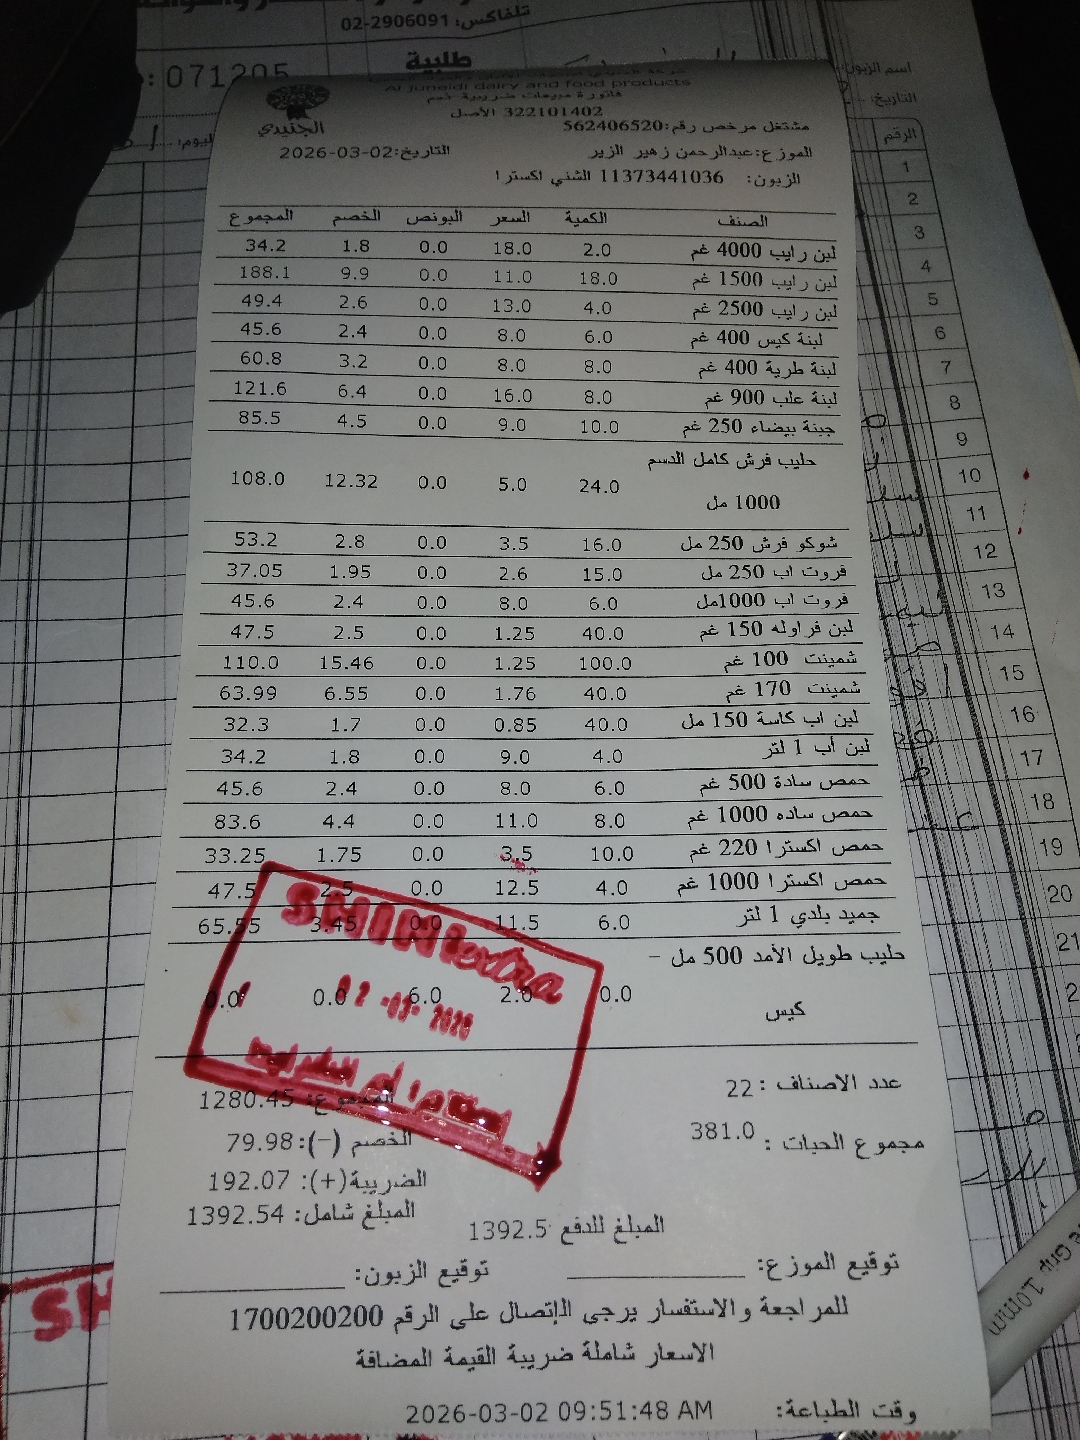 تلفاكس: 02-2906091
طلبية
071205
اسم الزبون:
التاريخ:
Al Juneidi dairy and food products
فاتورة مبيعات ضريبية ذمم
322101402 الأصل
الجنيدي
مشتغل مرخص رقم:562406520
الموزع:عبدالرحمن زهير الزير التاريخ:2026-03-02
الزبون: 11373441036 الشني اكسترا
الصنف الكمية السعر البونص الخصم المجموع
لبن رايب 4000 غم 2.0 18.0 0.0 1.8 34.2
لبن رايب 1500 غم 18.0 11.0 0.0 9.9 188.1
لبن رايب 2500 غم 4.0 13.0 0.0 2.6 49.4
لبنة كيس 400 غم 6.0 8.0 0.0 2.4 45.6
لبنة طرية 400 غم 8.0 8.0 0.0 3.2 60.8
لبنة علب 900 غم 8.0 16.0 0.0 6.4 121.6
جبنة بيضاء 250 غم 10.0 9.0 0.0 4.5 85.5
حليب فرش كامل الدسم
1000 مل 24.0 5.0 0.0 12.32 108.0
شوكو فرش 250 مل 16.0 3.5 0.0 2.8 53.2
فروت اب 250 مل 15.0 2.6 0.0 1.95 37.05
فروت اب 1000مل 6.0 8.0 0.0 2.4 45.6
لبن فراوله 150 غم 40.0 1.25 0.0 2.5 47.5
شمينت 100 غم 100.0 1.25 0.0 15.46 110.0
شمينت 170 غم 40.0 1.76 0.0 6.55 63.99
لبن اب كاسة 150 مل 40.0 0.85 0.0 1.7 32.3
لبن أب 1 لتر 4.0 9.0 0.0 1.8 34.2
حمص سادة 500 غم 6.0 8.0 0.0 2.4 45.6
حمص ساده 1000 غم 8.0 11.0 0.0 4.4 83.6
حمص اكسترا 220 غم 10.0 3.5 0.0 1.75 33.25
حمص اكسترا 1000 غم 4.0 12.5 0.0 2.5 47.5
جميد بلدي 1 لتر 6.0 11.5 0.0 3.45 65.55
حليب طويل الأمد 500 مل -
كيس 0.0 2.0 6.0 0.0 0.0
SHINI extra
عدد الاصناف : 22 المجموع: 1280.45
مجموع الحبات : 381.0 الخصم (-): 79.98
الضريبة(+): 192.07
المبلغ شامل: 1392.54
المبلغ للدفع 1392.5
توقيع الموزع: توقيع الزبون:
للمراجعة والاستفسار يرجى الإتصال على الرقم 1700200200
الاسعار شاملة ضريبة القيمة المضافة
وقت الطباعة: 2026-03-02 09:51:48 AM
الرقم
1
2
3
4
5
6
7
8
9
10
11
12
13
14
15
16
17
18
19
20
21